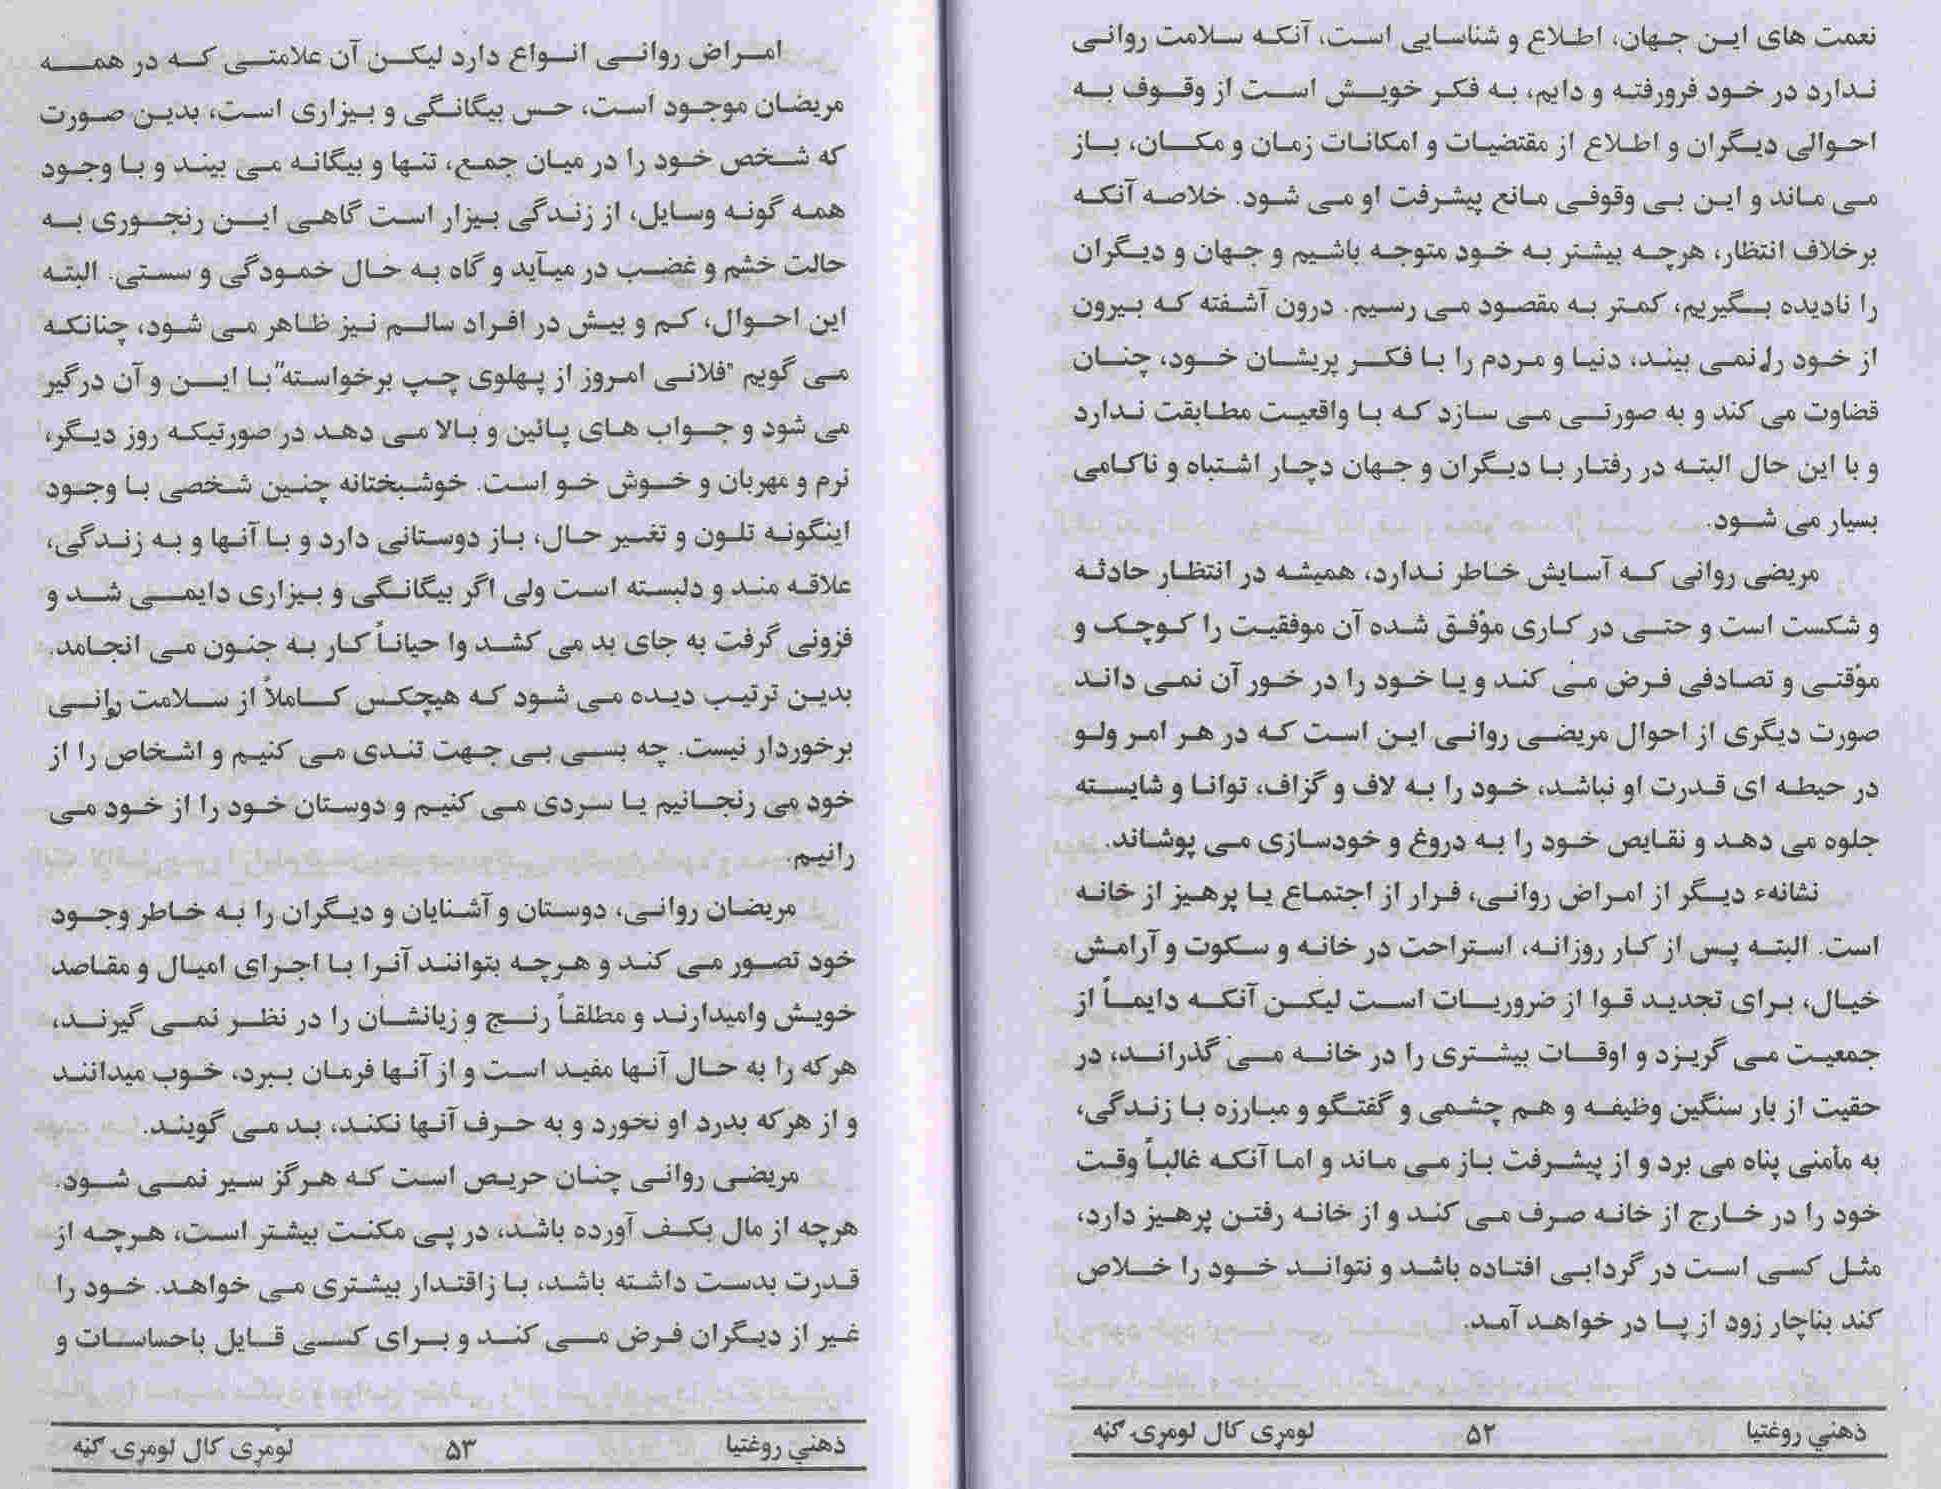 نعمت های این جهان، اطلاع و شناسایی است، آنکه سلامت روانی
ندارد در خود فرورفته و دایم، به فکر خویش است از وقوف به
احوالی دیگران و اطلاع از مقتضیات و امکانات زمان و مکان، باز
می ماند و این بی وقوفی مانع پیشرفت او می شود. خلاصه آنکه
برخلاف انتظار، هرچه بیشتر به خود متوجه باشیم و جهان و دیگران
را نادیده بگیریم، کمتر به مقصود می رسیم. درون آشفته که بیرون
از خود را نمی بیند، دنیا و مردم را با فکر پریشان خود، چنان
قضاوت می کند و به صورتی می سازد که با واقعیت مطابقت ندارد
و با این حال البته در رفتار با دیگران و جهان دچار اشتباه و ناکامی
بسیار می شود.
مریضی روانی که آسایش خاطر ندارد، همیشه در انتظار حادثه
و شکست است و حتی در کاری مؤفق شده آن موفقیت را کوچک و
مؤقتی و تصادفی فرض می کند و یا خود را در خور آن نمی داند
صورت دیگری از احوال مریضی روانی این است که در هر امر ولو
در حیطه ای قدرت او نباشد، خود را به لاف و گزاف، توانا و شایسته
جلوه می دهد و نقایص خود را به دروغ و خودسازی می پوشاند.
نشانهء دیگر از امراض روانی، فرار از اجتماع یا پرهیز از خانه
است. البته پس از کار روزانه، استراحت در خانه و سکوت و آرامش
خیال، برای تجدید قوا از ضروریات است لیکن آنکه دایماً از
جمعیت می گریزد و اوقات بیشتری را در خانه می گذراند، در
حقیت از بار سنگین وظیفه و هم چشمی و گفتگو و مبارزه با زندگی،
به مأمنی پناه می برد و از پیشرفت باز می ماند و اما آنکه غالباً وقت
خود را در خارج از خانه صرف می کند و از خانه رفتن پرهیز دارد،
مثل کسی است در گردابی افتاده باشد و نتواند خود را خلاص
کند بناچار زود از پا در خواهد آمد.
ذهني روغتیا ۵۲ لومړی کال لومړۍ ګڼه
امراض روانی انواع دارد لیکن آن علامتی که در همه
مریضان موجود است، حس بیگانگی و بیزاری است، بدین صورت
که شخص خود را در میان جمع، تنها و بیگانه می بیند و با وجود
همه گونه وسایل، از زندگی بیزار است گاهی این رنجوری به
حالت خشم و غضب در میآید و گاه به حال خمودگی و سستی. البته
این احوال، کم و بیش در افراد سالم نیز ظاهر می شود، چنانکه
می گویم "فلانی امروز از پهلوی چپ برخواسته" با این و آن درگیر
می شود و جواب های پائین و بالا می دهد در صورتیکه روز دیگر،
نرم و مهربان و خوش خو است. خوشبختانه چنین شخصی با وجود
اینگونه تلون و تغیر حال، باز دوستانی دارد و با آنها و به زندگی،
علاقه مند و دلبسته است ولی اگر بیگانگی و بیزاری دایمی شد و
فزونی گرفت به جای بد می کشد وا حیاناً کار به جنون می انجامد.
بدین ترتیب دیده می شود که هیچکس کاملاً از سلامت روانی
برخوردار نیست. چه بسی بی جهت تندی می کنیم و اشخاص را از
خود می رنجانیم یا سردی می کنیم و دوستان خود را از خود می
رانیم.
مریضان روانی، دوستان و آشنایان و دیگران را به خاطر وجود
خود تصور می کند و هرچه بتوانند آنرا با اجرای امیال و مقاصد
خویش وامیدارند و مطلقاً رنج و زیانشان را در نظر نمی گیرند،
هرکه را به حال آنها مفید است و از آنها فرمان ببرد، خوب میدانند
و از هرکه بدرد او نخورد و به حرف آنها نکند، بد می گویند.
مریضی روانی چنان حریص است که هرگز سیر نمی شود.
هرچه از مال بکف آورده باشد، در پی مکنت بیشتر است، هرچه از
قدرت بدست داشته باشد، با زاقتدار بیشتری می خواهد. خود را
غیر از دیگران فرض می کند و برای کسی قایل باحساسات و
ذهني روغتیا ۵۳ لومړی کال لومړۍ ګڼه